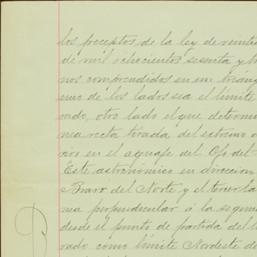 los preceptos de la ley de veinti
de mil ochocientos sesenta y t
nos comprendidos en un trián
uno de los lados sea el límite
rado, otro lado el que determi
na recta tirada del extremo o
rio en el aguaje del Ojo del
Este astronómico en direccion
Bravo del Norte y el tercer la
nea perpendicular á la segun
desde el punto de partida del l
rado como límite Nordeste de